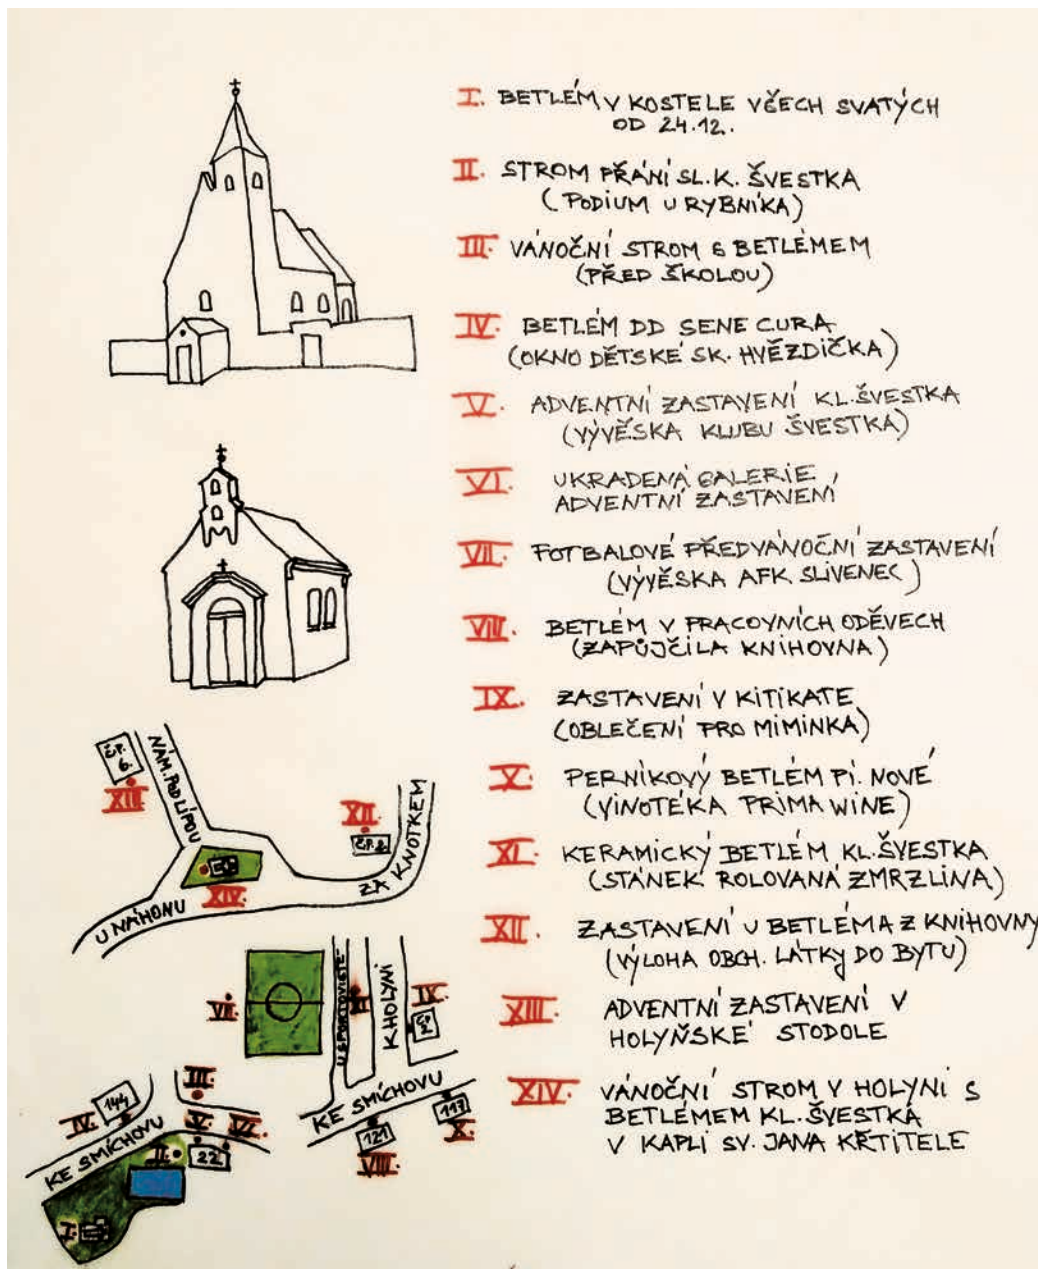 I. BETLÉM V KOSTELE VŠECH SVATÝCH
OD 24.12.
II. STROM PŘÁNÍ SL. K. ŠVESTKA
(PODIUM U RYBNÍKA)
III. VÁNOČNÍ STROM S BETLÉMEM
(PŘED ŠKOLOU)
IV. BETLÉM DD SENE CURA
(OKNO DĚTSKÉ SK. HVĚZDIČKA)
V. ADVENTNÍ ZASTAVENÍ KL. ŠVESTKA
(VÝVĚSKA KLUBU ŠVESTKA)
VI. UKRADENÁ GALERIE,
ADVENTNÍ ZASTAVENÍ
VII. FOTBALOVÉ PŘEDVÁNOČNÍ ZASTAVENÍ
(VÝVĚSKA AFK SLIVENEC)
VIII. BETLÉM V PRACOVNÍCH ODĚVECH
(ZAPŮJČILA KNIHOVNA)
IX. ZASTAVENÍ V KITIKATE
(OBLEČENÍ PRO MIMINKA)
X. PERNÍKOVÝ BETLÉM PÍ. NOVÉ
(VINOTÉKA PRIMA WINE)
XI. KERAMICKÝ BETLÉM KL. ŠVESTKA
(STÁNEK ROLOVANÁ ZMRZLINA)
XII. ZASTAVENÍ U BETLÉMA Z KNIHOVNY
(VÝLOHA OBCH. LÁTKY DO BYTU)
XIII. ADVENTNÍ ZASTAVENÍ V
HOLYŇSKÉ STODOLE
XIV. VÁNOČNÍ STROM V HOLYNI S
BETLÉMEM KL. ŠVESTKA
V KAPLI SV. JANA KŘTITELE
Č.P.
6.
XIII.
NÁM. POD LÍPOU
XII.
ZA KNOTKEM
XIV.
U NÁHONU
VII.
U SPORTOVIŠTĚ
XI
K HOLYNI
IX.
KE SMÍCHOVU
121
VIII.
117
X.
III.
IV.
144
V.
VI.
KE SMÍCHOVU
II.
22
I.